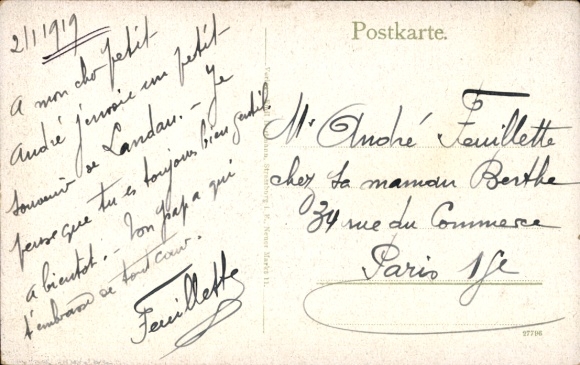 2/1 1919
Postkarte.
A mon cho petit
André j'envoie un petit
souvenir de Landau. - Je
pense que tu es toujours bien gentil.
A bientôt. - Ton papa qui
t'embrasse de tout cœur.
Feuillette
Mr André Feuillette
chez sa maman Berthe
34 rue du Commerce
Paris 15e
27796